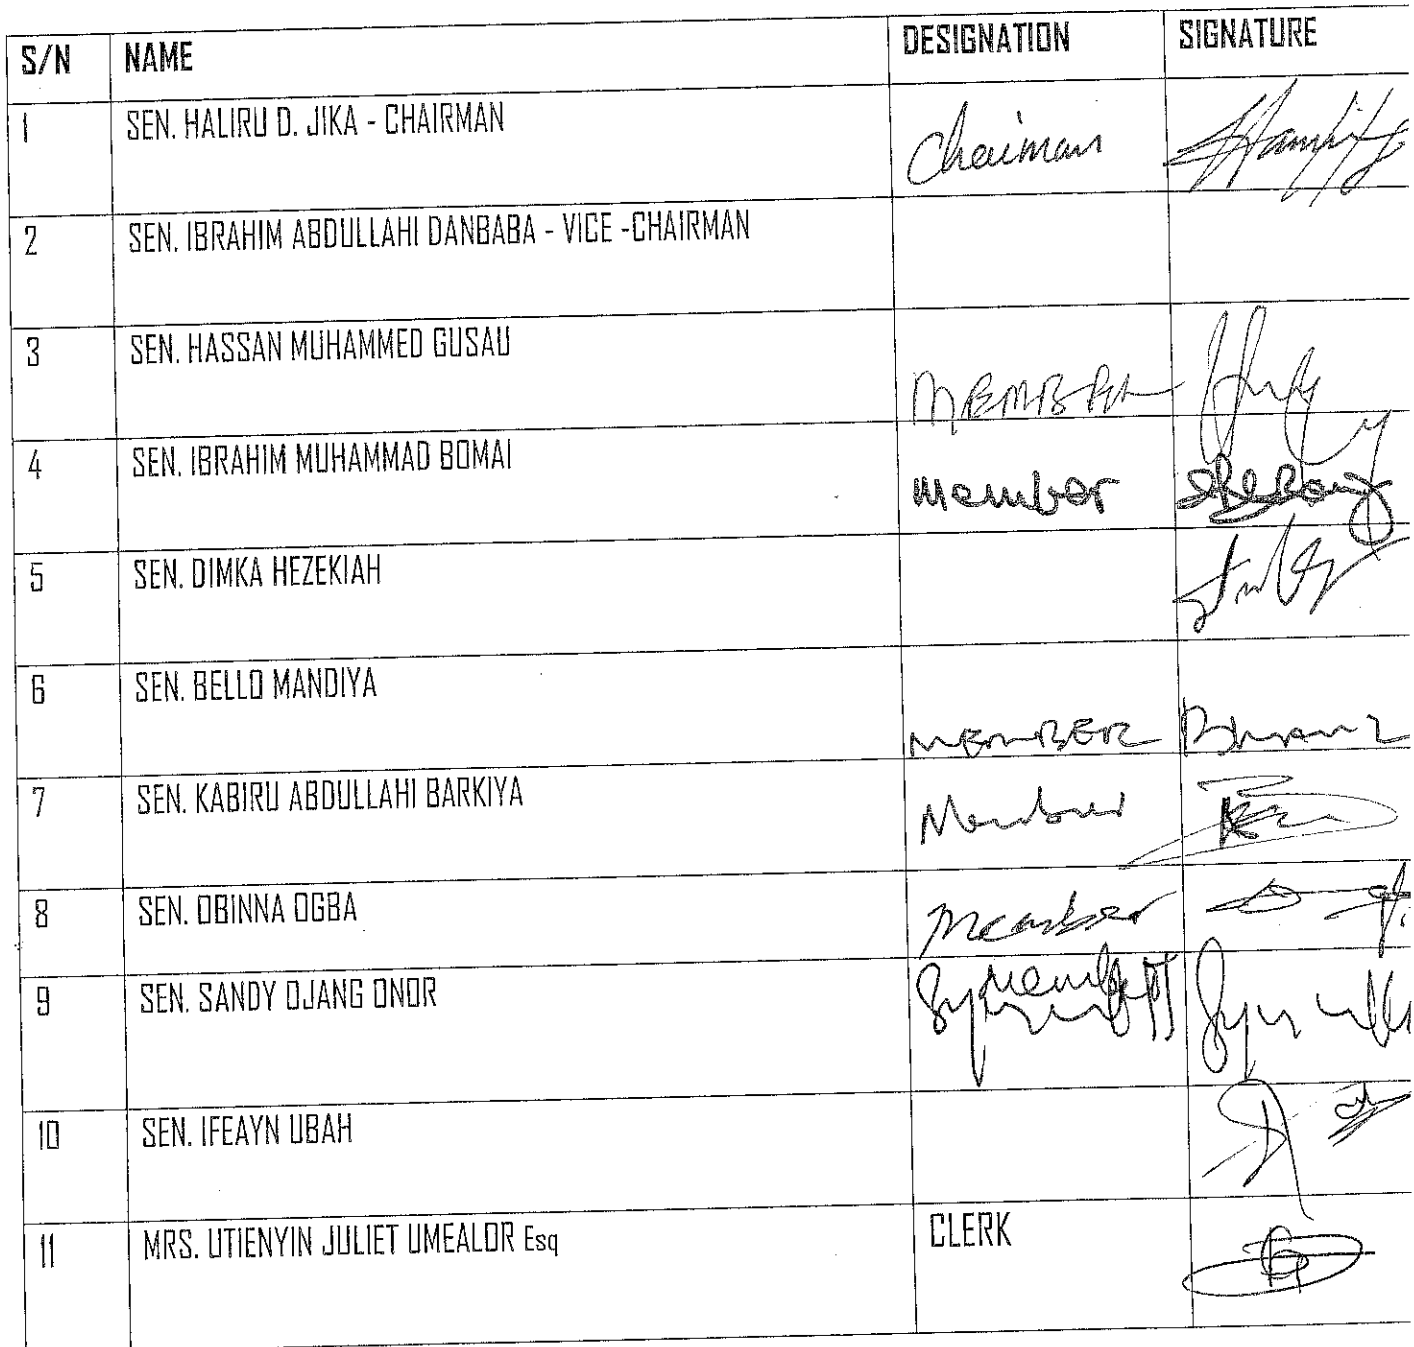 S/N NAME DESIGNATION SIGNATURE
1 SEN. HALIRU D. JIKA - CHAIRMAN Chaiman
2 SEN. IBRAHIM ABDULLAHI DANBABA - VICE -CHAIRMAN
3 SEN. HASSAN MUHAMMED GUSAU MEMBER
4 SEN. IBRAHIM MUHAMMAD BOMAI Member
5 SEN. DIMKA HEZEKIAH
6 SEN. BELLO MANDIYA MEMBER
7 SEN. KABIRU ABDULLAHI BARKIYA Member
8 SEN. OBINNA OGBA Member
9 SEN. SANDY OJANG ONOR Member
10 SEN. IFEAYN UBAH
11 MRS. UTIENYIN JULIET UMEALOR Esq CLERK